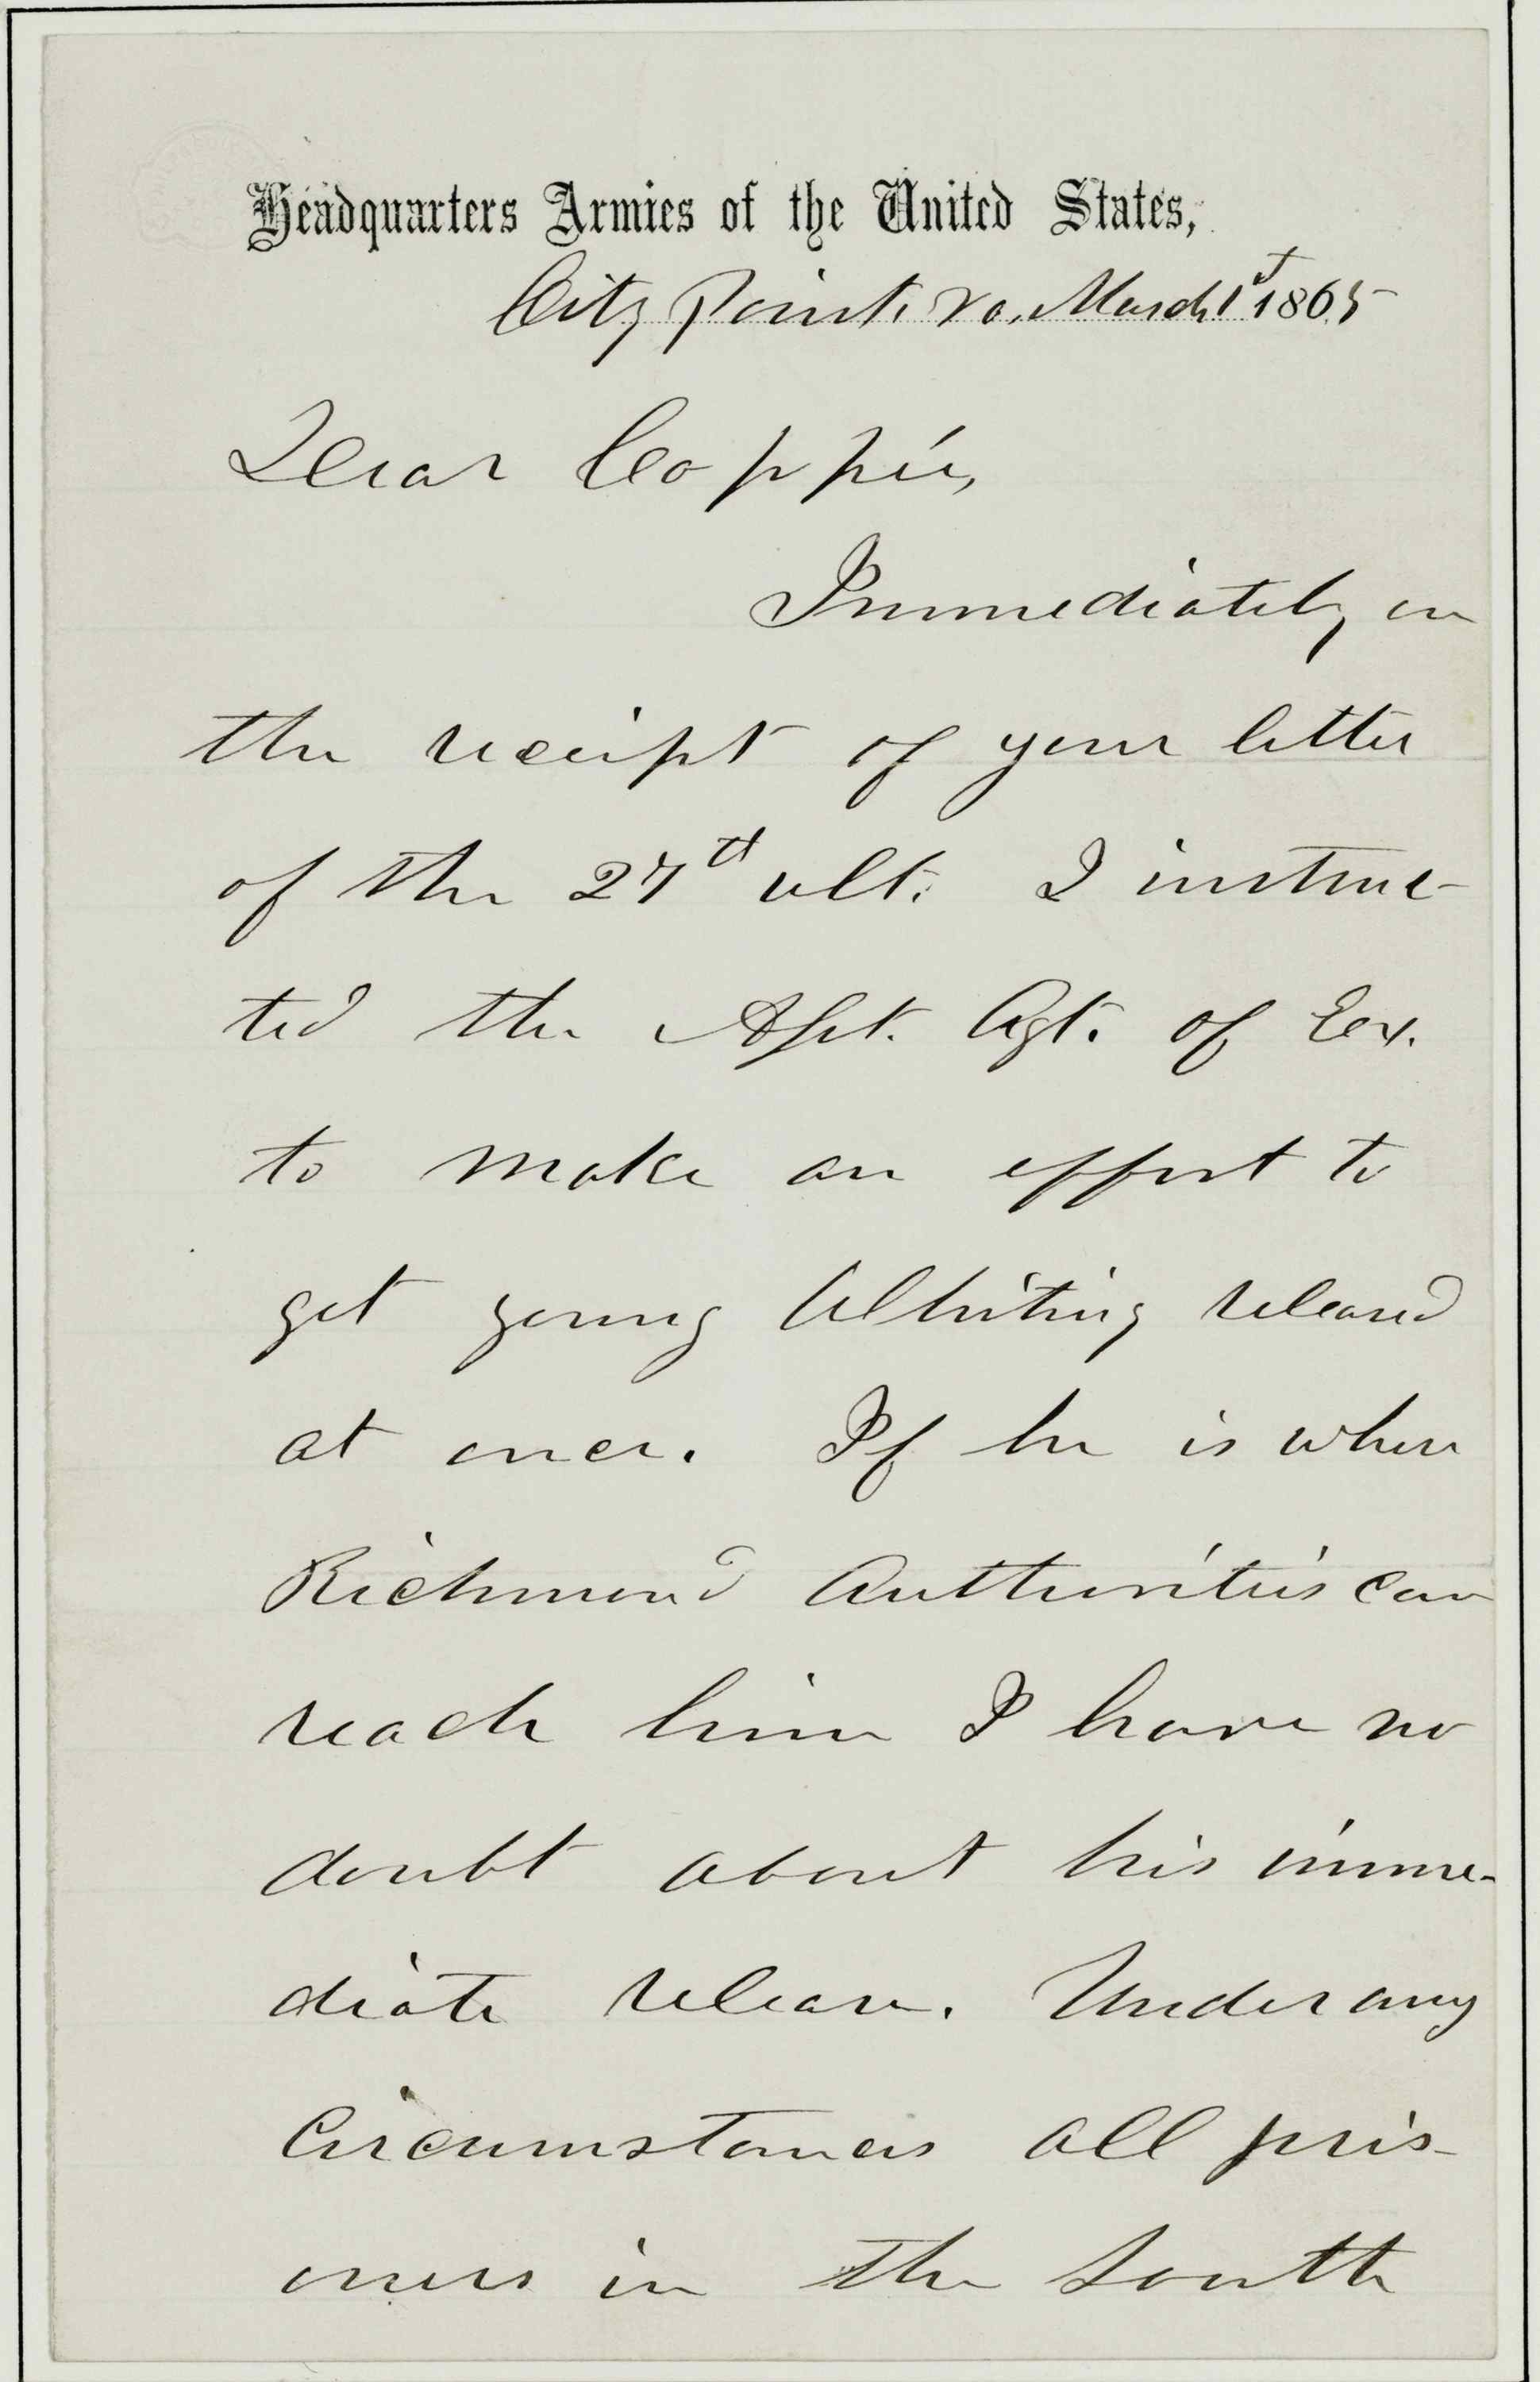 Headquarters Armies of the United States,
City Point, Va, March 1st 1865
Dear Coppée,
Immediately on
the receipt of your letter
of the 27th ult. I instruc-
ted the Asst. Agt. of Ex.
to make an effort to
get young Whiting released
at once. If he is where
Richmond Authorities can
reach him I have no
doubt about his imme-
diate release. Under any
Circumstances all pris-
oners in the South